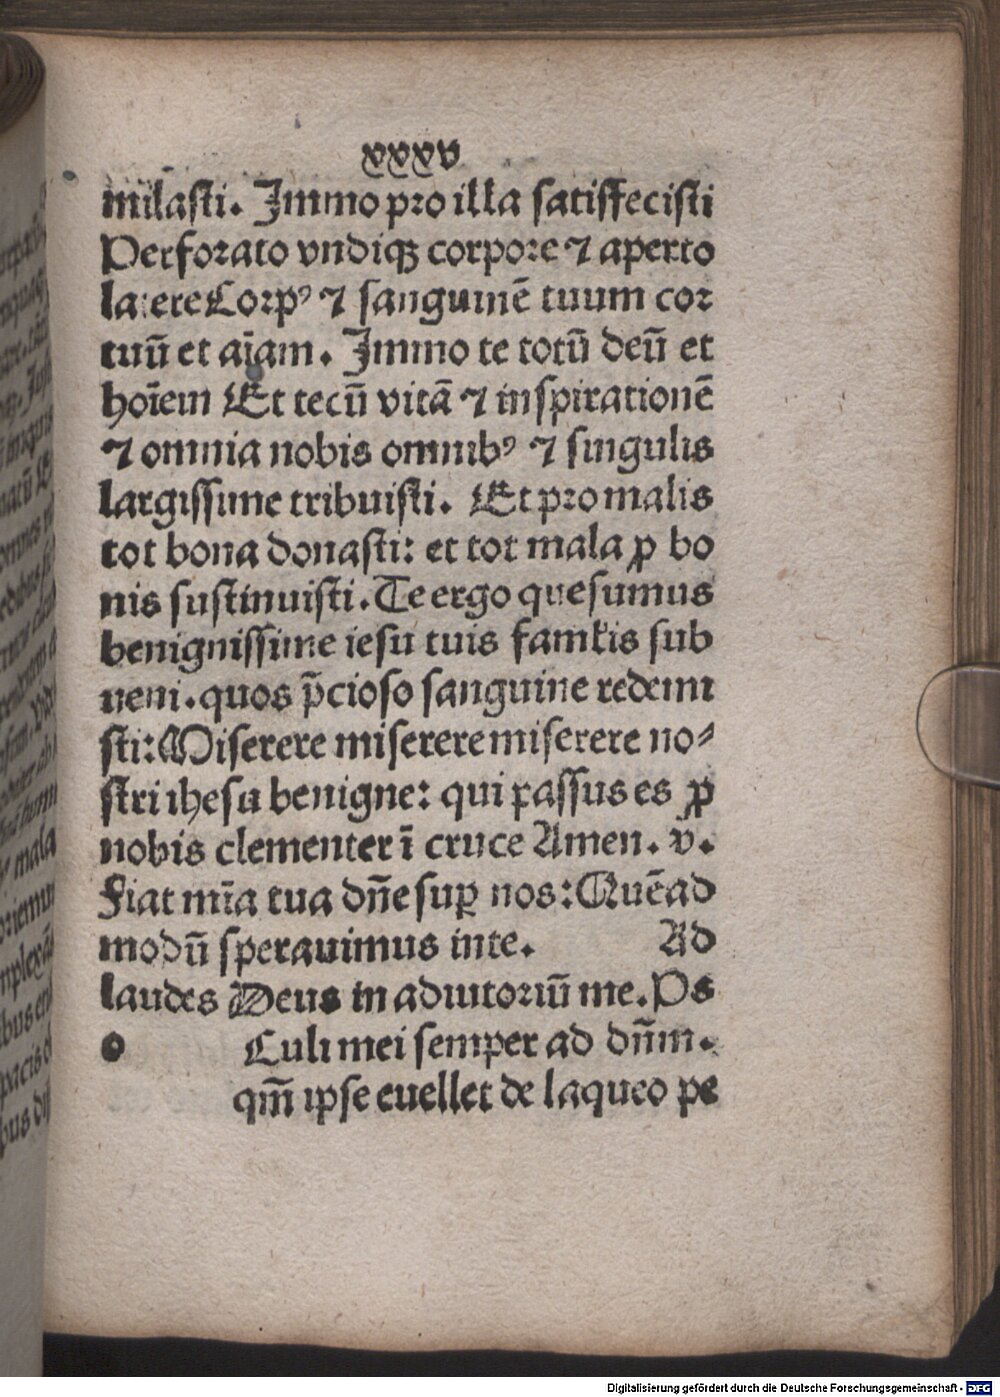 xxxv
milasti. Immo pro illa satisfecisti
Perforato vndiqꝫ corpore ⁊ aperto
latere Corpꝰ ⁊ sanguinē tuum cor
tuū et aīam. Immo te totū deū et
hoīem Et tecū vitā ⁊ inspirationē
⁊ omnia nobis omnibꝰ ⁊ singulis
largissime tribuisti. Et pro malis
tot bona donasti: et tot mala ꝓ bo
nis sustinuisti. Te ergo quesumus
benignissime iesu tuis famꝉis sub
veni. quos p̄cioso sanguine redemi
sti: Miserere miserere miserere no⸗
stri ihesu benigne: qui passus es ꝓ
nobis clementer ī cruce Amen. v.
Fiat mīa tua dn̄e suꝑ nos: Quēad
modū sperauimus inte. Ad
laudes Deus in adiutoriū me. Ps
o Culi mei semper ad dn̄m.
qm̄ ipse euellet de laqueo pe
Digitalisierung gefördert durch die Deutsche Forschungsgemeinschaft - DFG